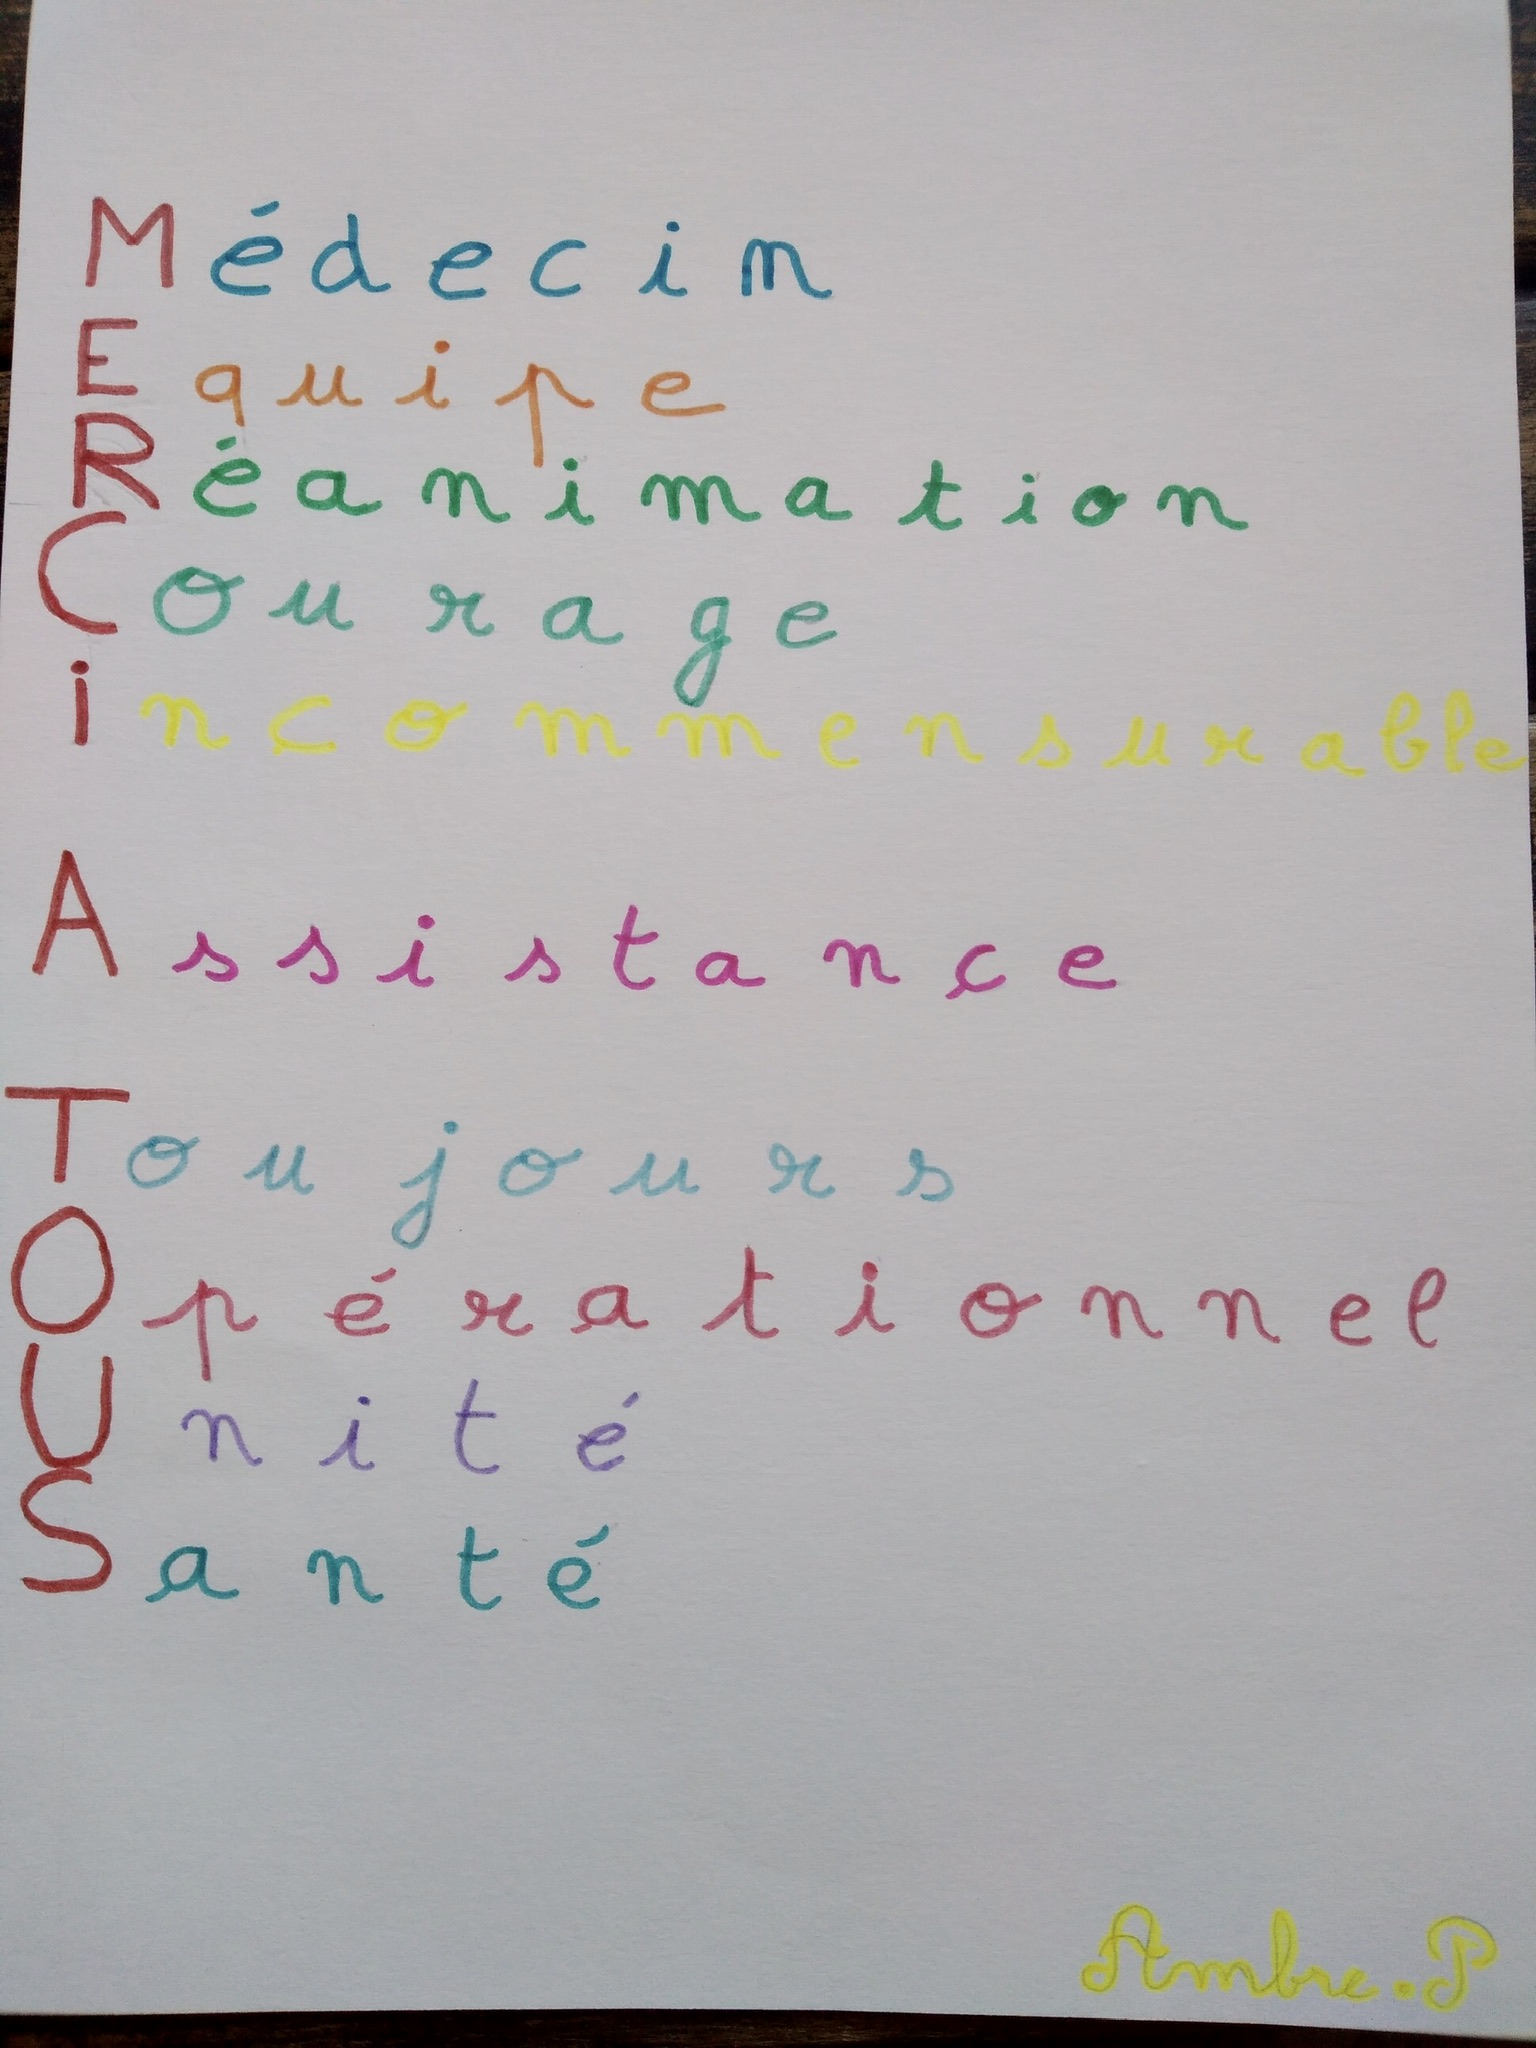 Médecin
Equipe
Réanimation
Courage
incommensurable
Assistance
Toujours
Opérationnel
Unité
Santé
Ambre.P